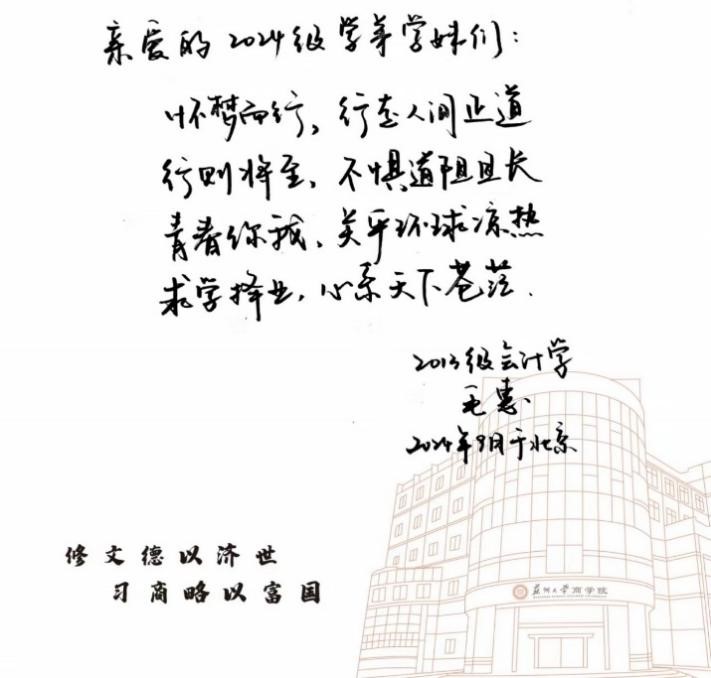 亲爱的2024级学弟学妹们：
怀梦而行，行在人间正道
行则将至，不惧道阻且长
青春你我，关乎环球凉热
求学择业，心系天下苍茫.
2013级会计学
毛惠
2024年9月于北京
修文德以济世
习商略以富国
苏州大学商学院